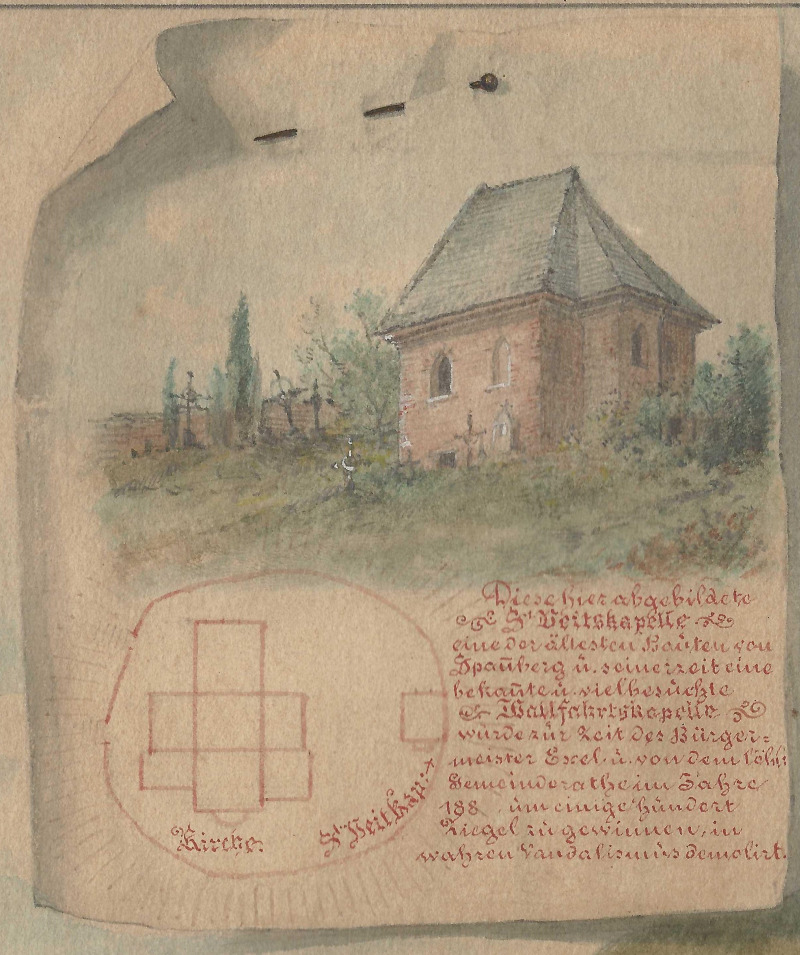 Diese hier abgebildete
St Veitskapelle
eine der ältesten Bauten von
Span̄berg u. seinerzeit eine
bekan̄te u. vielbesuchte
Wallfahrtskapelle
wurde zur Zeit des Bürger=
meister Exel u. von dem löbl:
Gemeinderathe im Jahre
188 um einige hundert
Ziegel zu gewinnen, in
wahren Vandalismus demolirt.
Kirche.
St Veit Kap: